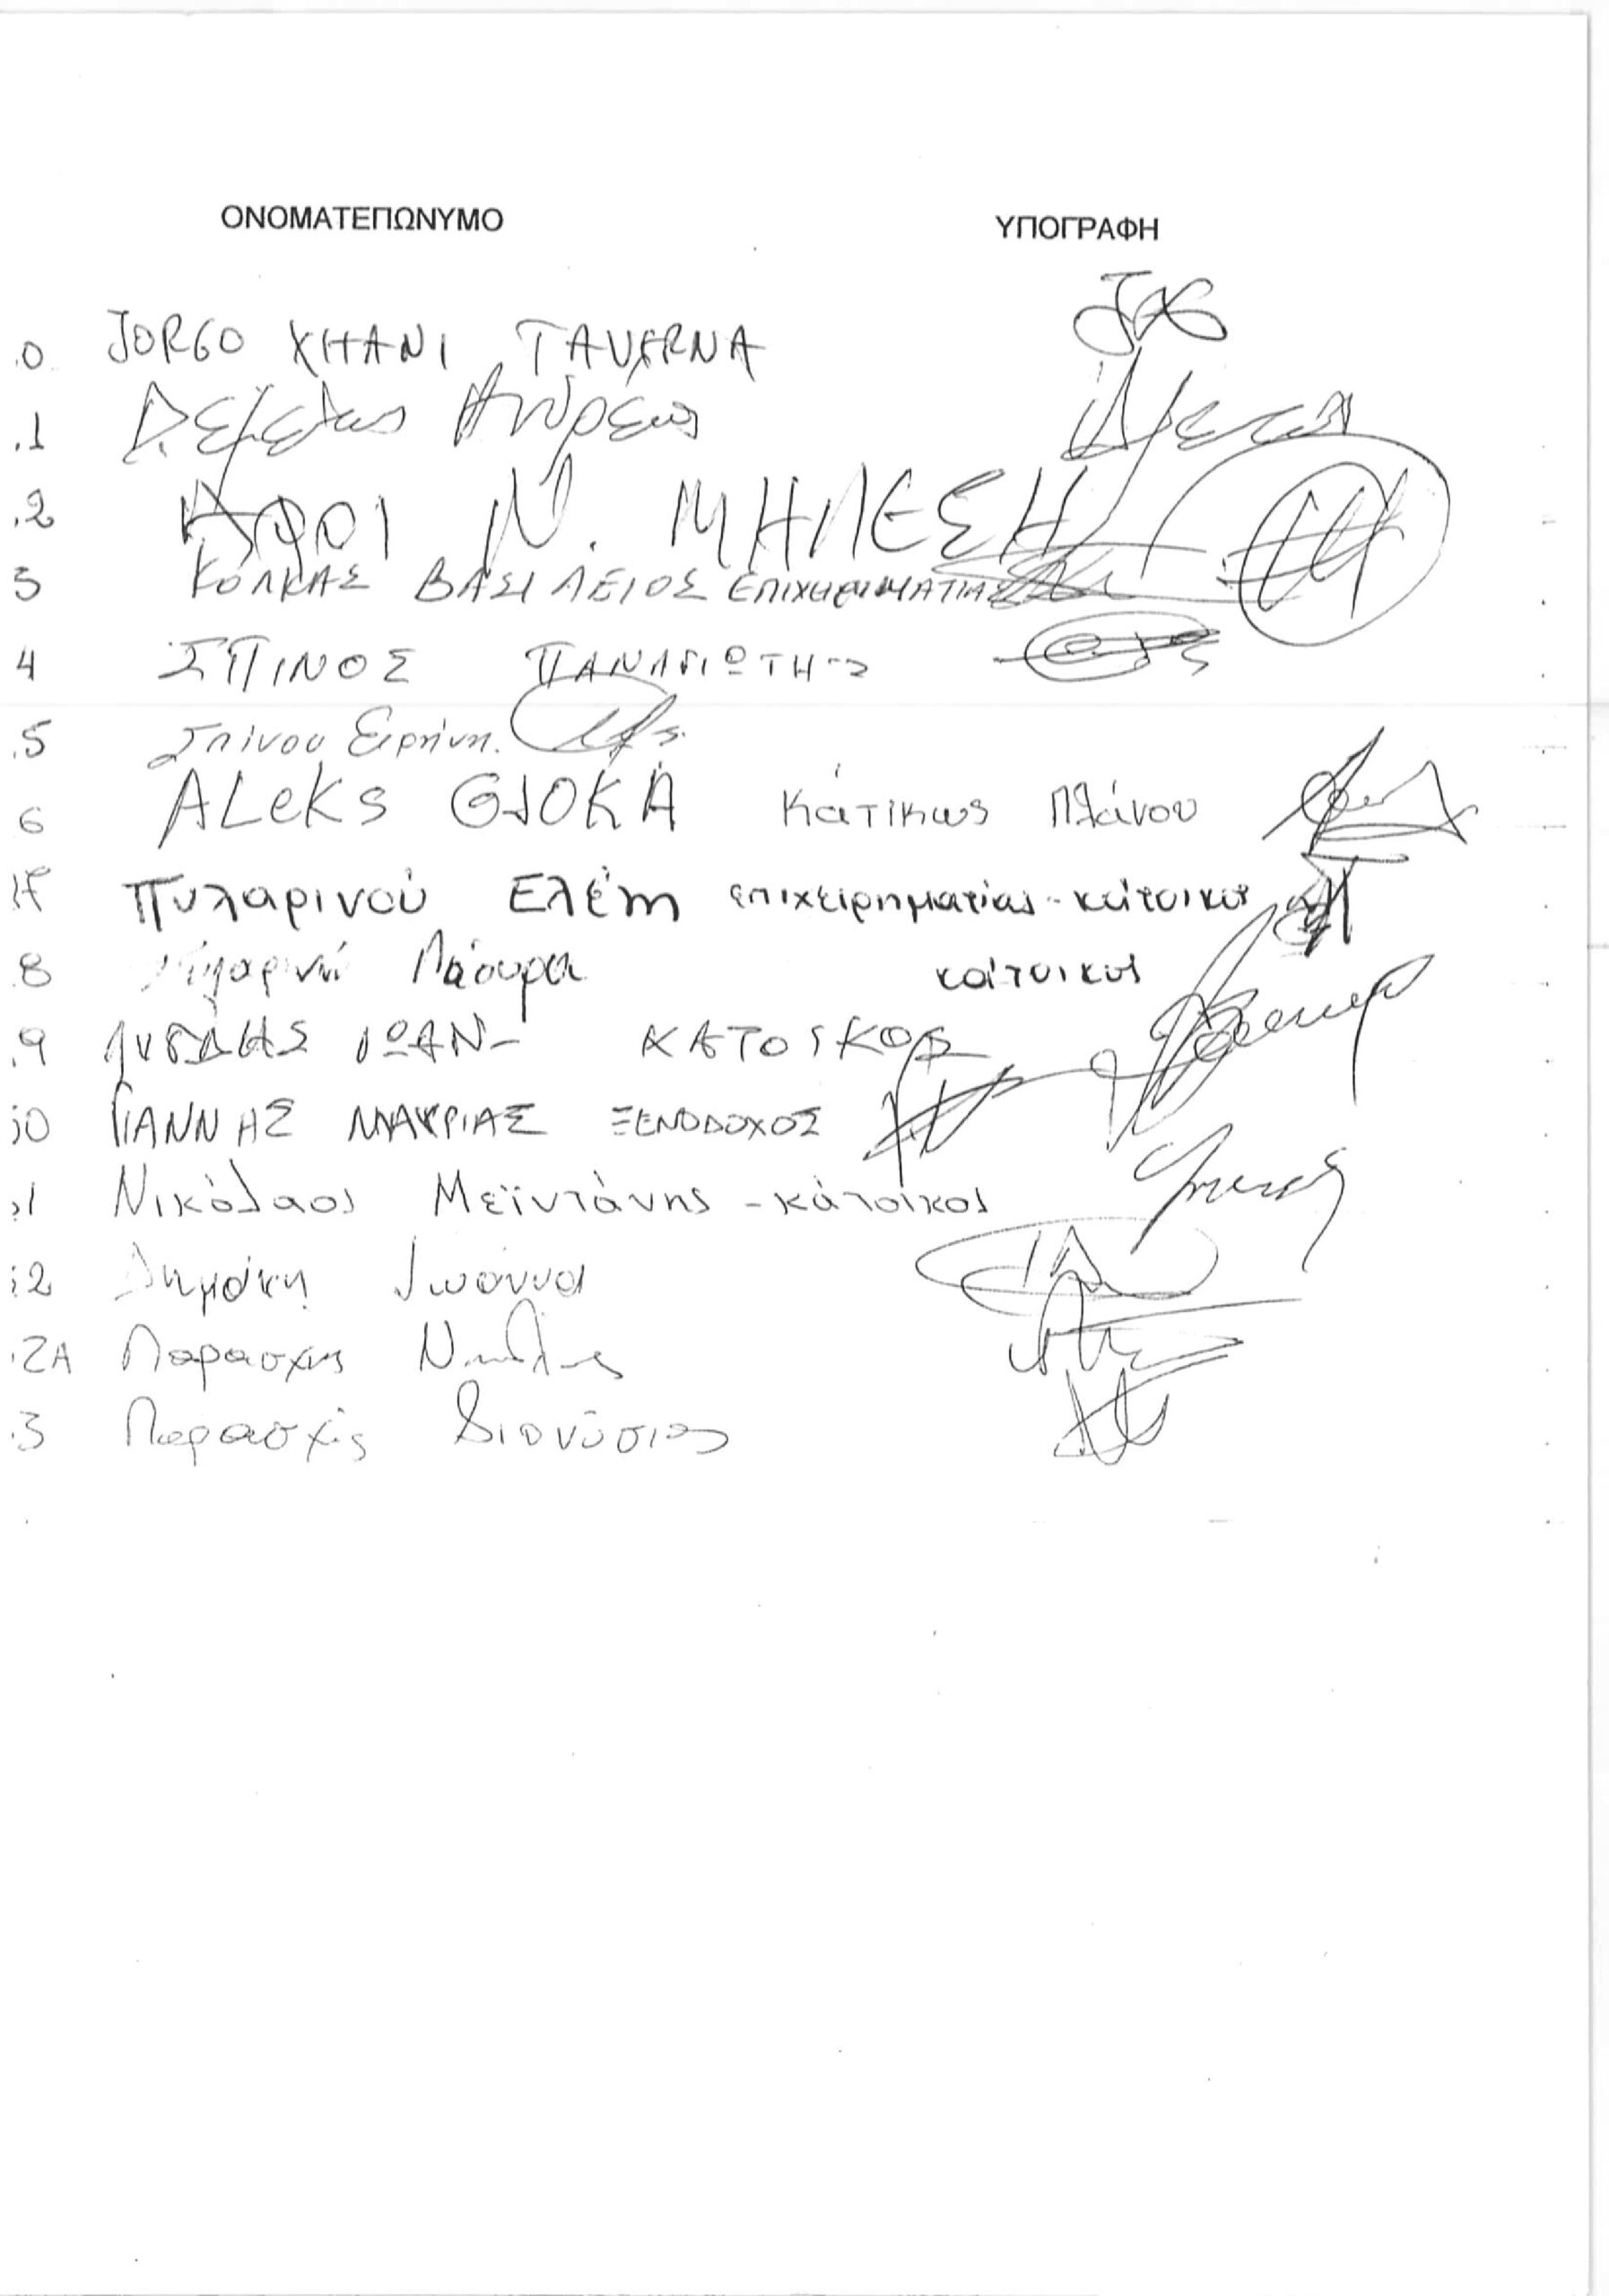 ΟΝΟΜΑΤΕΠΩΝΥΜΟ ΥΠΟΓΡΑΦΗ
.0 JORGO XHANI TAVERNA
.1 Ανδρέας
.2 ΑΦΟΙ Ν. ΜΗΛΕΣΗ
3 ΚΟΛΚΑΣ ΒΑΣΙΛΕΙΟΣ ΕΠΙΧΗΡΙΜΑΤΙΑΣ
4 ΣΠΙΝΟΣ ΠΑΝΑΓΙΩΤΗΣ
.5 Σπίνου Ειρήνη.
6 ALeKs GJOKA κάτικως Πλάνου
17 Πυλαρινού Ελένη επιχειρηματίας - κάτοικος
8 Λάουρα κάτοικος
.9 ΙΩΑΝ- ΚΑΤΟΙΚΟΣ
30 ΓΙΑΝΝΗΣ ΜΑΥΡΙΑΣ ΞΕΝΟΔΟΧΟΣ
31 Νικόλαος Μεϊντάνης - κάτοικος
32 Δημάκη Ιωάννα
.2A Παράσχης Νικόλαος
.3 Παράσχης Διονύσιος